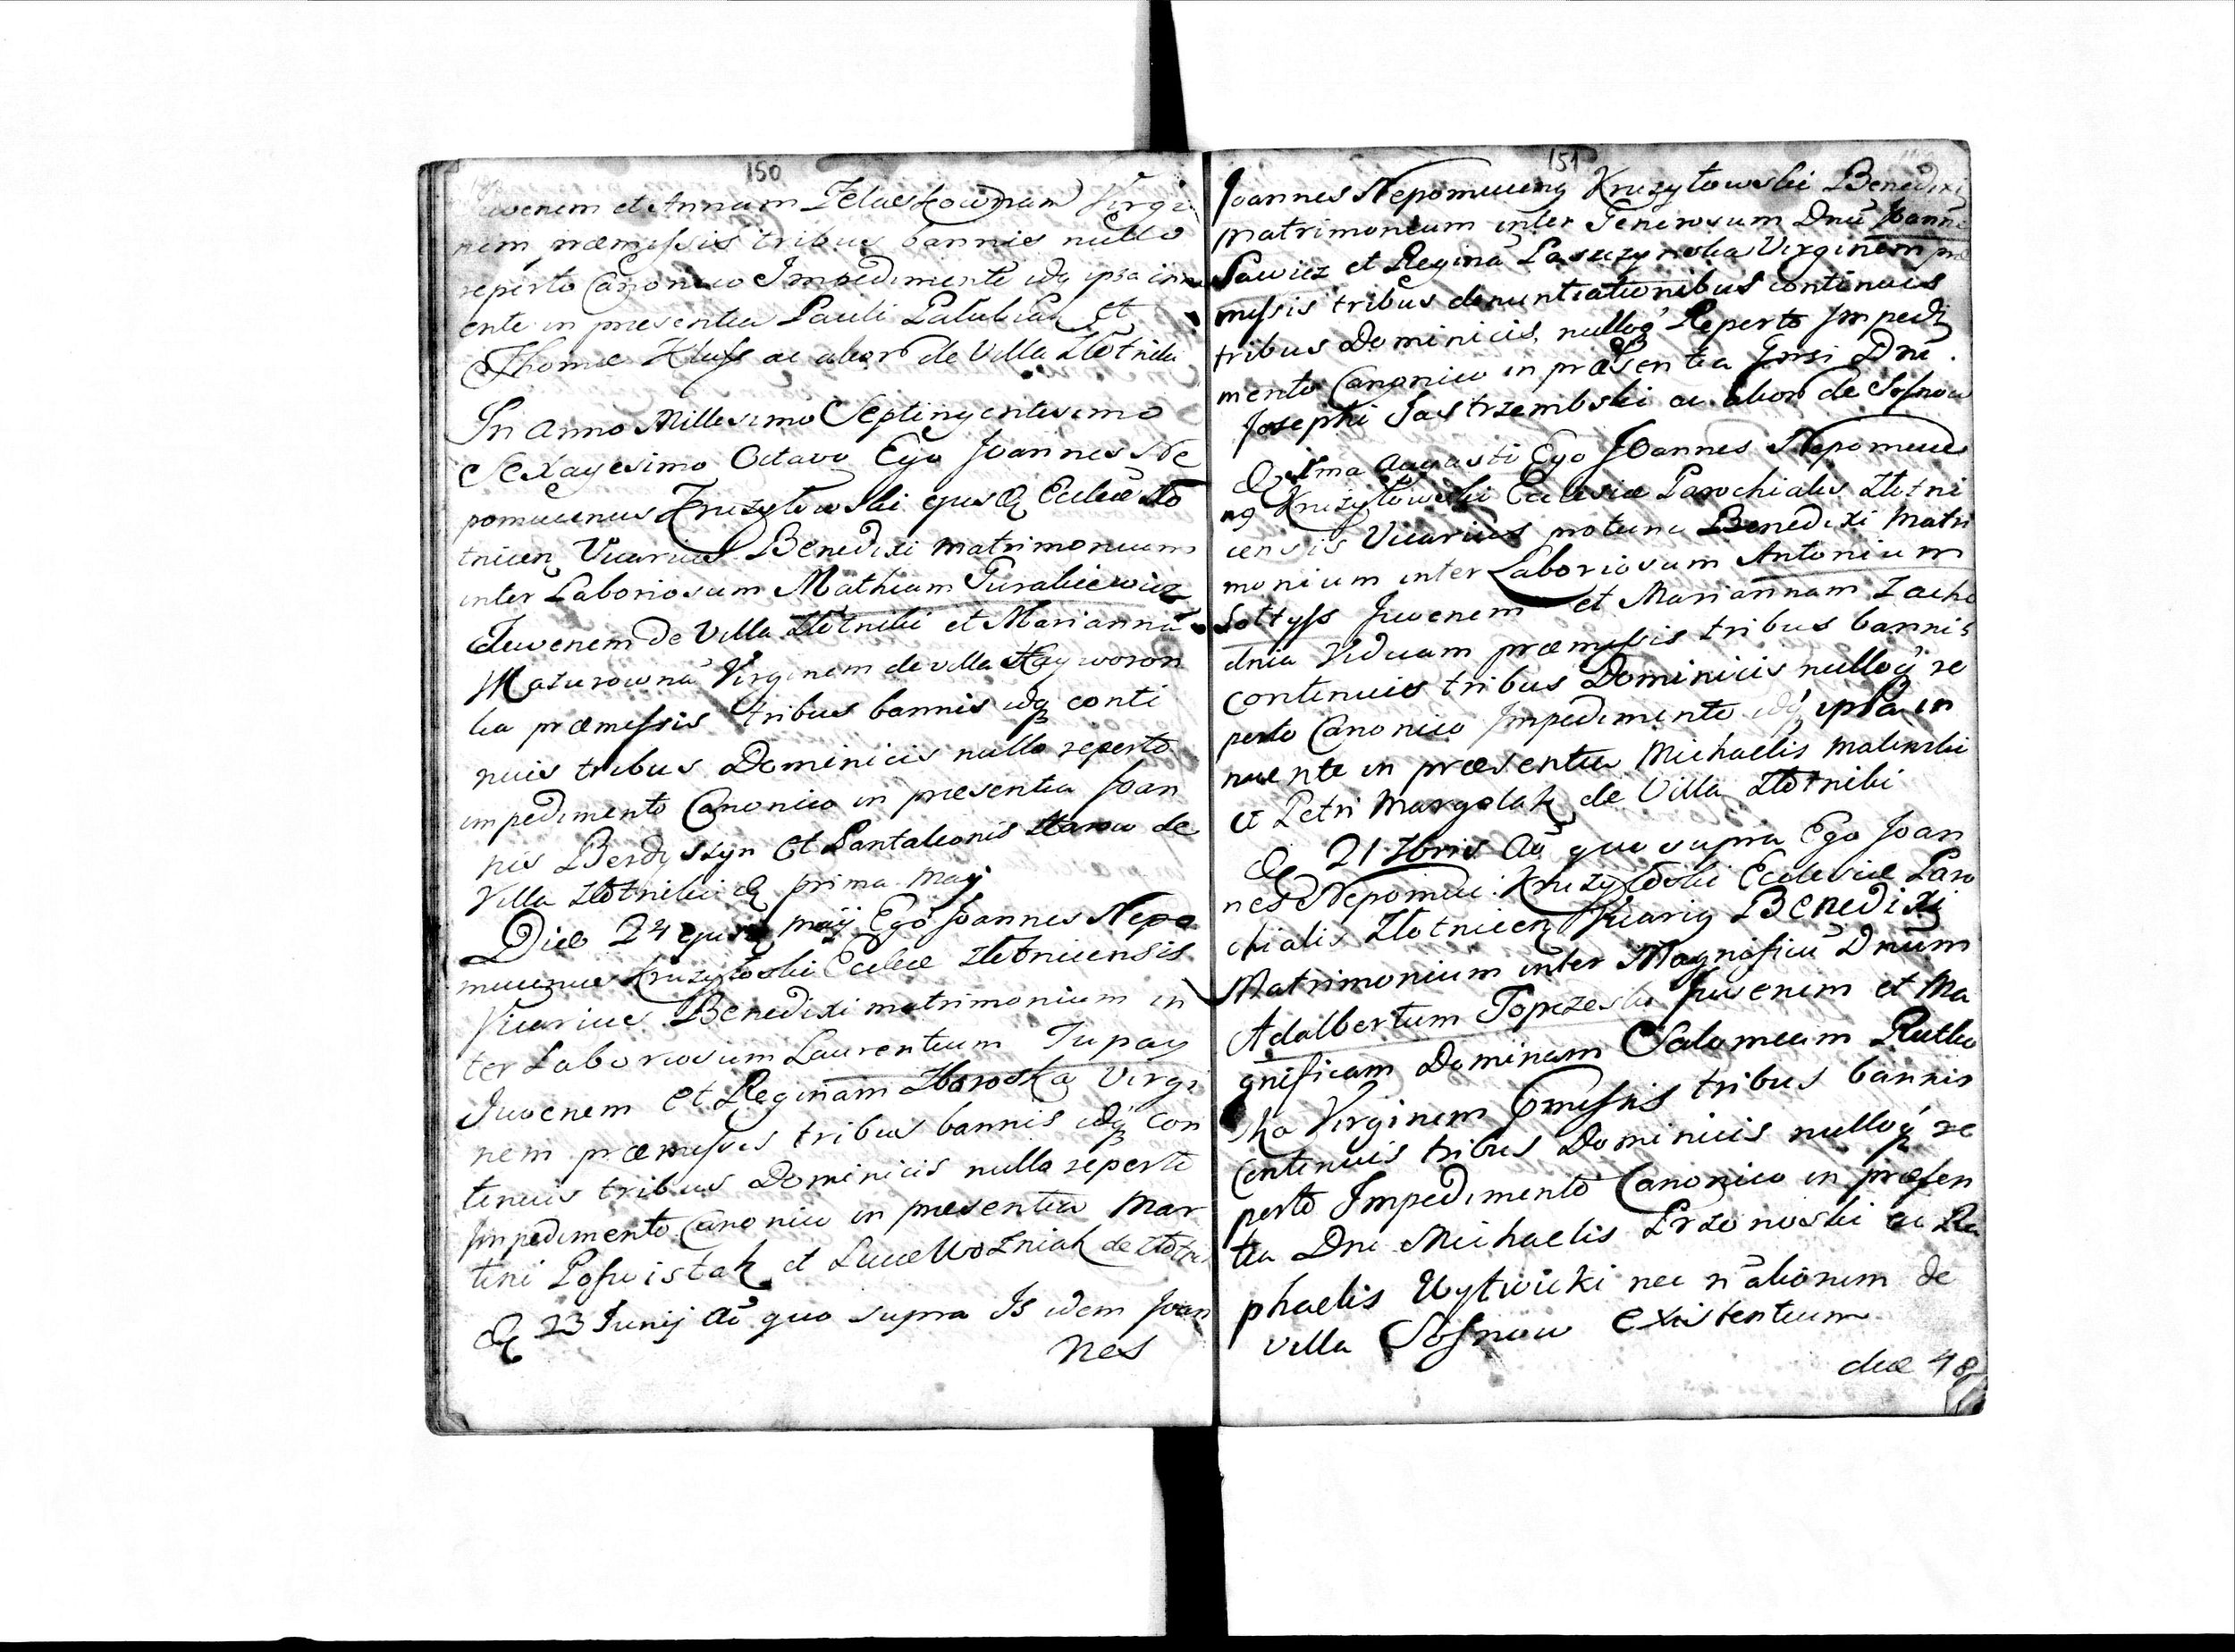 150
Juvenem et Annam Zelaskownam Virgi
nem præmissis tribus bannis nullo
reperto Canonico Impedimento idq ipsa inn
ente in præsentia Pauli Palubiak et
Thomæ Kluss ac alior de Villa Złotniki
In Anno Millesimo Septingentesimo
Sexagesimo Octavo Ego Joannes Ne
pomucenus Kruszyłowski ejusdem Eccleæ Zło
tnicen Vicarius Benedixi matrimonium
inter Laboriosum Mathæum Guralicewicz
Juvenem de Villa Złotniki et Mariannā
Mazurownā Virginem de villa Hayworon
ka præmissis tribus bannis idq conti
nuis tribus Dominicis nullo reperto
impedimento Canonico in præsentia Joan
nis Berdyszyn et Pantaleonis de
Villa Złotniki d prima Maij
Die 24 ejusd maij Ego Joannes Nepo
mucenus Kruszyłoski Eccleæ Złotnicensis
Vicarius Benedixi matrimonium in
ter Laboriosum Laurentium Tupay
Juvenem et Reginam Zboroską Virgi
nem præmissis tribus bannis idq con
tinuis tribus Dominicis nullo reperto
Impedimento Canonico in præsentia Mar
tini Poswistak et Lucæ Wozniak de Złotni
D 23 Junij Aō quo supra Is idem Joan
nes
151
Joannes Nepomucenq Kruszyłowski Benedixi
matrimonium inter Generosum Dnū Joanne
Sawicz et Reginā Laszczynska Virginem præ
missis tribus denuntiationibus continuis
tribus Dominicis, nulloq Reperto Impedi
mento Canonico in præsentia Gnsi Dni
Josephi Jastrzembski ac alior de Sosnow
D Ima Augusti Ego Joannes Nepomuce
nq Kruszyłowski Ecclesiæ Parochialis Złotni
censis Vicarius protunc Benedixi Matri
monium inter Laboriosum Antonium
Sołtyss Juvenem et Mariannam Zacho
dnia Viduam præmissis tribus bannis
continuis tribus Dominicis nulloq re
perto Canonico Impedimento idq ipsa in
nuente in præsentia Michaelis Malinski
et Petri Margolak de Villa Złotniki
D 21 Aō quo supra Ego Joan
nes Nepomuc: Kruszyłoski Ecclesiæ Paro
chialis Złotnicen Vicariq Benedixi
Matrimonium inter Magnificū Dnūm
Adalbertum Toprzeski Juvenem et Ma
gnificam Dominam Salomeam Rutko
ska Virginem Pmissis tribus bannis
Continuis tribus Dominicis nulloq re
perto Impedimento Canonico in præsen
tia Dni Michaelis Przonoski ac Ra
phaelis Wytwicki nec n alionum de
villa Sosnow existentium
duæ 48